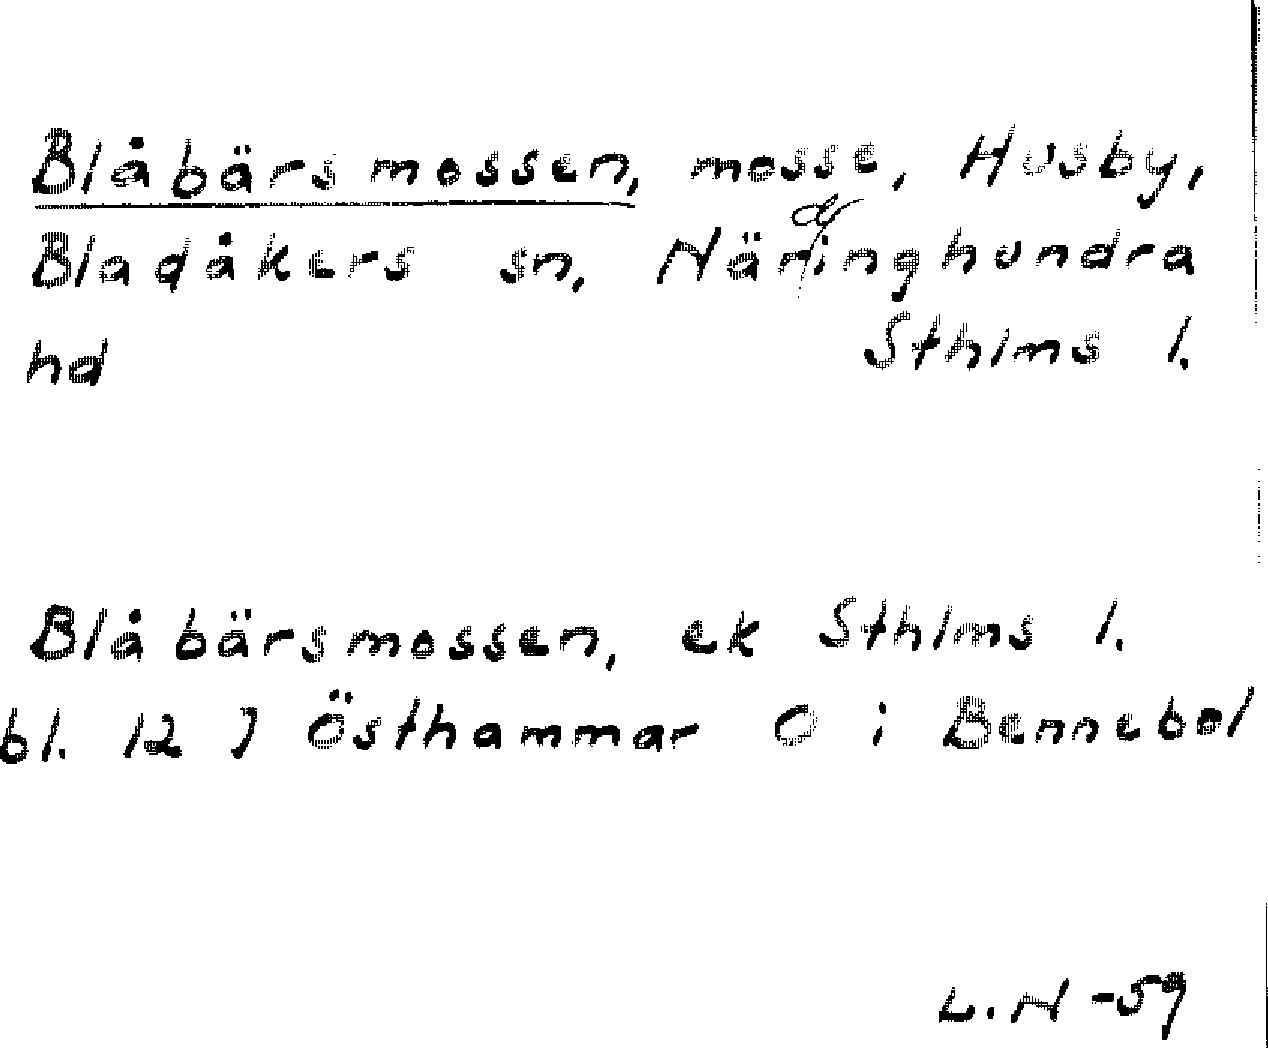 Blåbärsmossen, mosse, Husby,
Bladåkers sn, Närdinghundra
hd Sthlms l.
Blåbärsmossen, ek Sthlms l.
bl. 12 J Östhammar O i Bennebol
L.N -59